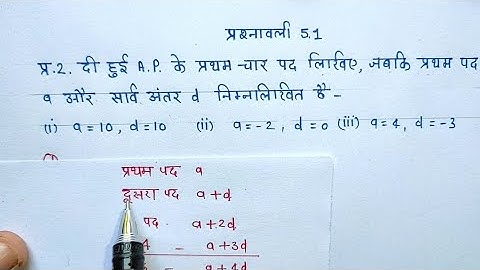 प्रश्नावली 5.1
प्र.2. दी हुई A.P. के प्रथम चार पद लिखिए, जबकि प्रथम पद
a और सार्व अंतर d निम्नलिखित है -
(i) a=10, d=10 (ii) a=-2, d=0 (iii) a=4, d=-3
प्रथम पद a
दूसरा पद a+d
पद a+2d
4 - a+3d
- a+4d